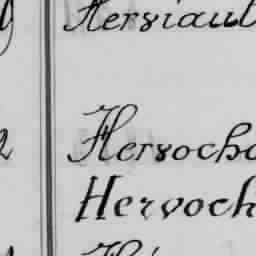 Hersiaul
Hersocho
Hervoch